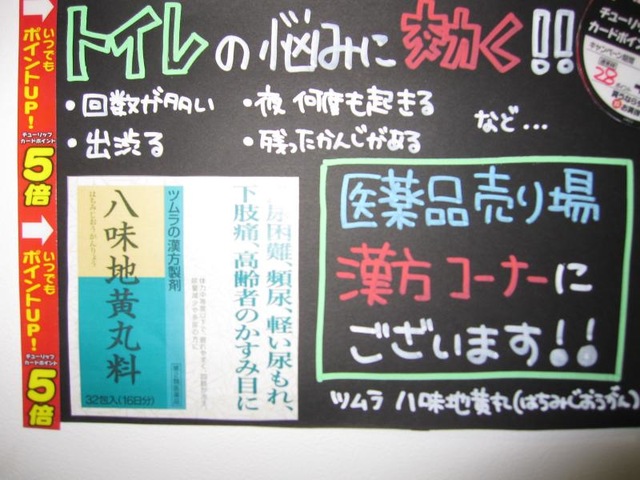 トイレの悩みに効く!!
・回数が多い
・夜 何度も起きる
・出渋る
・残ったかんじがある
など...
医薬品売り場
漢方コーナーに
ございます!!
ツムラ 八味地黄丸(はちみじおうがん)
いつでも
ポイントUP!
チューリップ
カードポイント
5倍
いつでも
ポイントUP!
チューリップ
カードポイント
5倍
ツムラの漢方製剤
八味地黄丸料
はちみじおうがんりょう
32包入(16日分)
尿困難、頻尿、軽い尿もれ、
下肢痛、高齢者のかすみ目に
チューリップ
カードポイント
キャンペーン期間
28